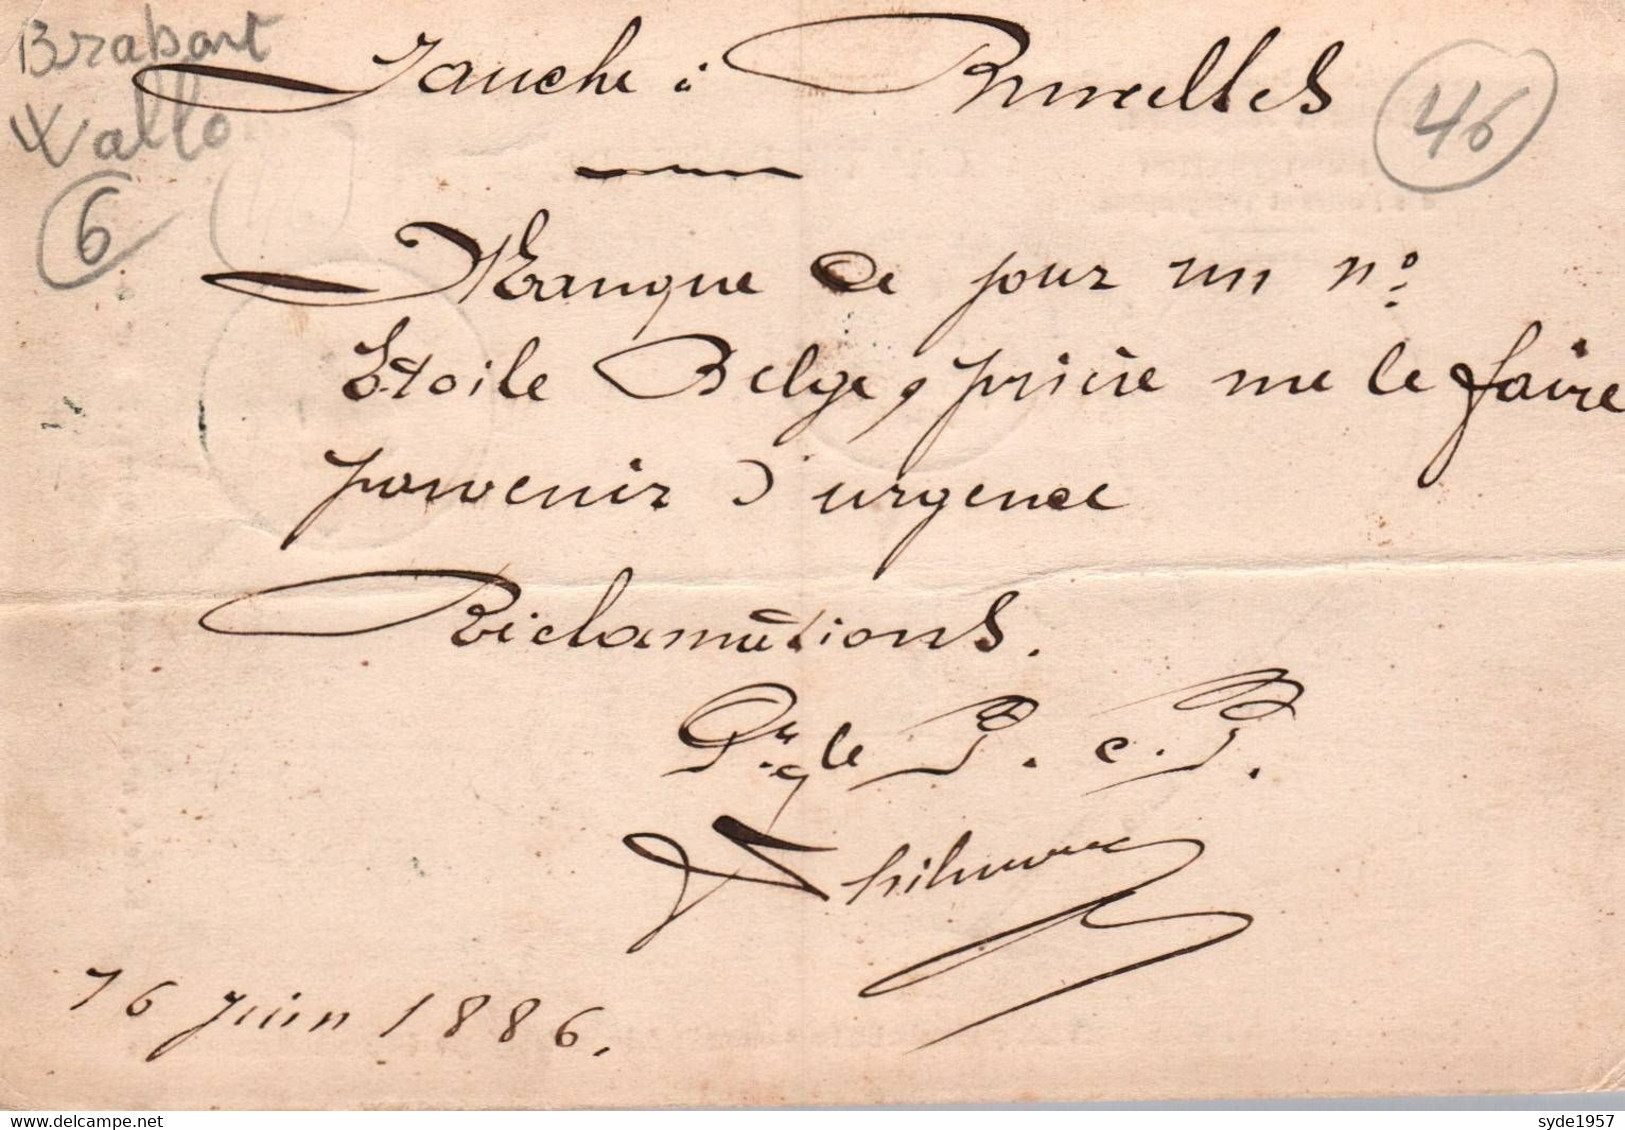 Brabant
Wallo
6
Jauche à Bruxelles
46
Manque ce jour un n°
Etoile Belge, prière me le faire
parvenir d'urgence
Réclamations.
le P. e. P.
16 juin 1886.
delcampe.net
syde1957